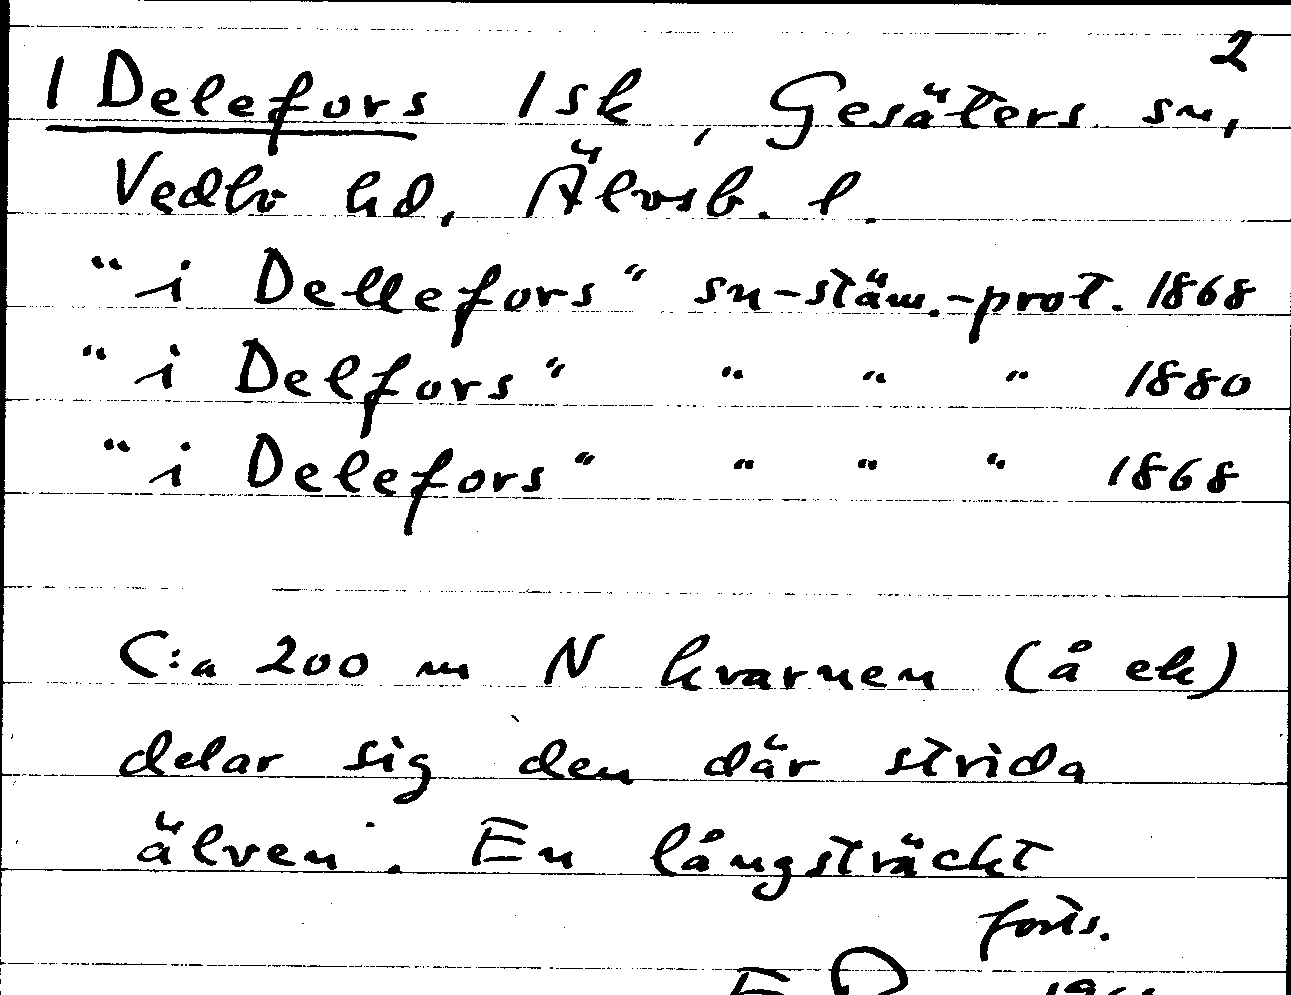 2
1 Delefors 1 sk, Gesäters sn,
Vedbo hd, Älvsb. l.
"i Dellefors" sn-stäm.-prot. 1868
"i Delfors" " " " 1880
"i Delefors" " " " 1868
C:a 200 m N kvarnen (å ek)
delar sig den där strida
älven. En långsträckt
forts.